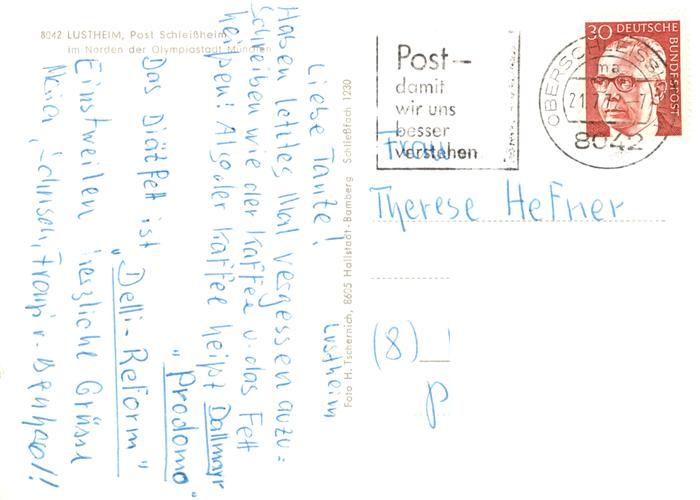 8042 LUSTHEIM, Post Schleißheim
im Norden der Olympiastadt München
Lustheim
Liebe Tante!
Haben letztes Mal vergessen auzu=
schreiben wie der Kaffee u. das Fett
heißen! Also der Kaffee heißt Dallmayr
"Prodomo"
Das Diätfett ist "Delli-Reform"
Einstweilen herzliche Grüsse
Foto H. Tschernich, 8605 Hallstadt-Bamberg Schließfach 1230
Post-
damit
wir uns
besser
verstehen
30 DEUTSCHE
BUNDESPOST
8042
Frau
Therese Hefner
(8)